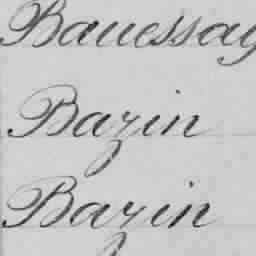 Bauessay
Bazin
Bazin